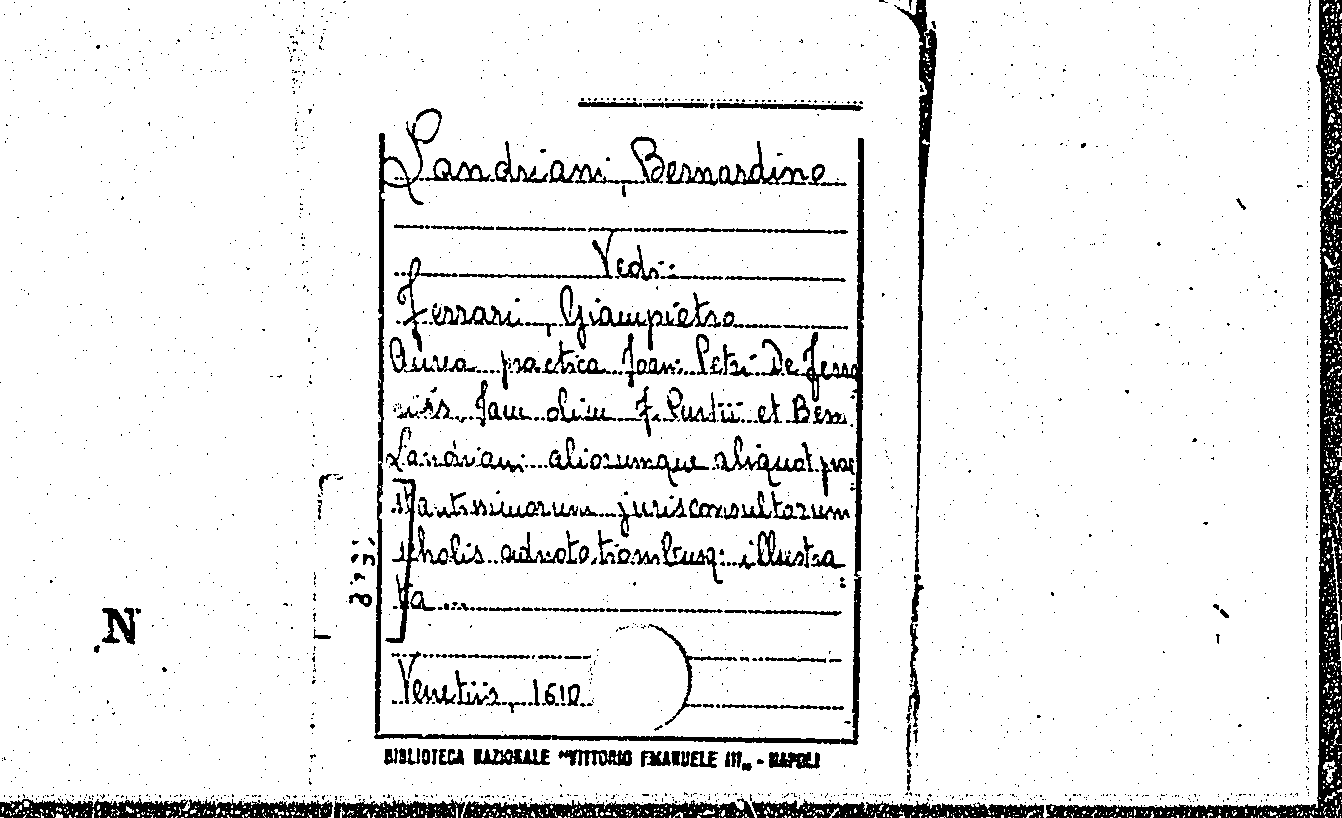 Landriani, Bernardino
Vedi:
Ferrari, Giampietro
Aurea practica Joan: Petri De Ferra
riis. Jam olim F. Curtii et Bern.
Landriani aliorumque aliquot prae
stantissimorum jurisconsultorum
scholis adnotationibusq: illustra
ta ...
Venetiis, 1610
N
BIBLIOTECA NAZIONALE "VITTORIO EMANUELE III„ - NAPOLI